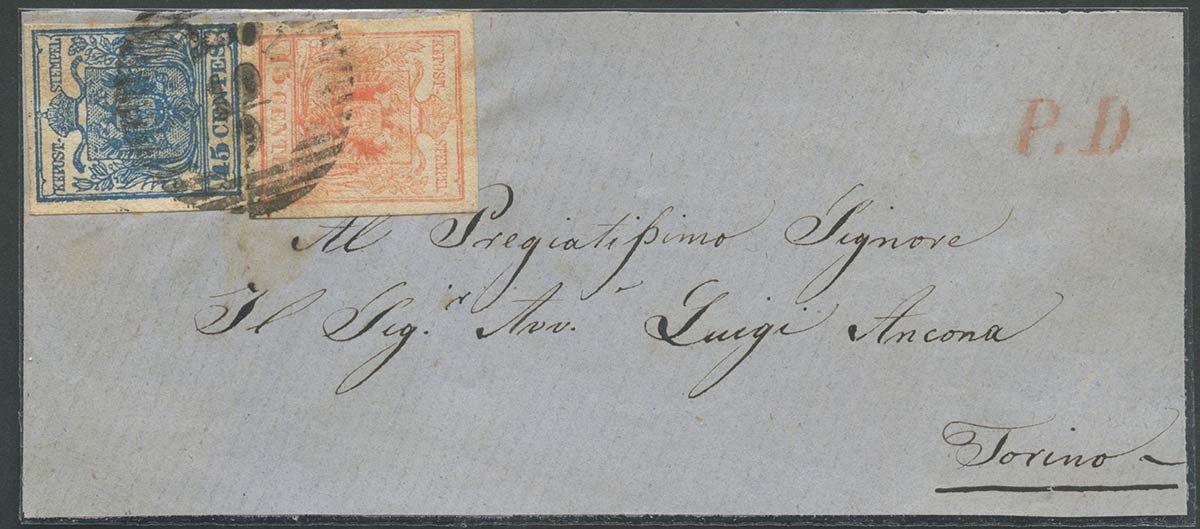 KKPOST-STEMPEL
45 CENTES
KKPOST-STEMPEL
15 CENTES
P.D
Al Pregiatißimo Signore
Il Sig.r Avv. Luigi Ancona
Torino